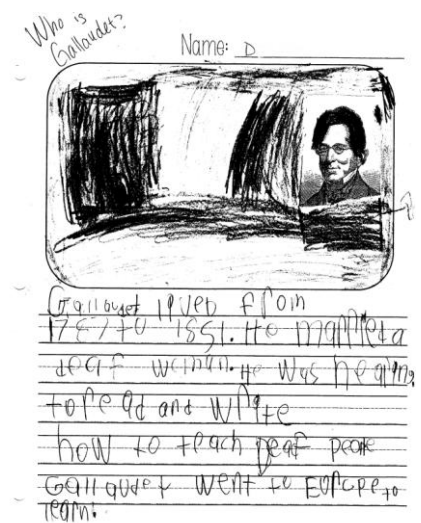 Who is
Gallaudet?
Name: D
Gallaudet lived from
1737 to 1851. He marrieta
deaf woman. He was hearing.
to read and write
how to teach deaf people
Gallaudet went to Europe to
learn.